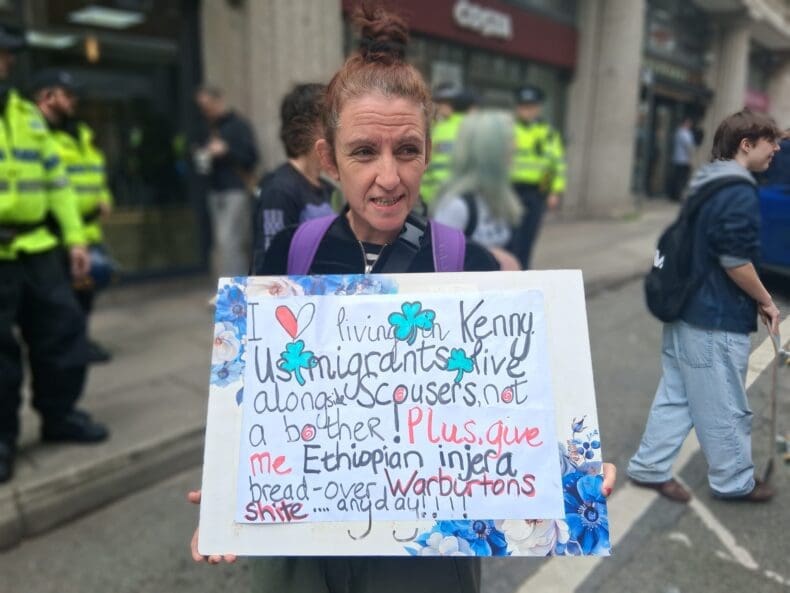 COSTA
I living in Kenny.
Us migrants live
alongside Scousers, not
a bother! Plus, give
me Ethiopian injera
bread-over Warburtons
shite .... any day!!!!